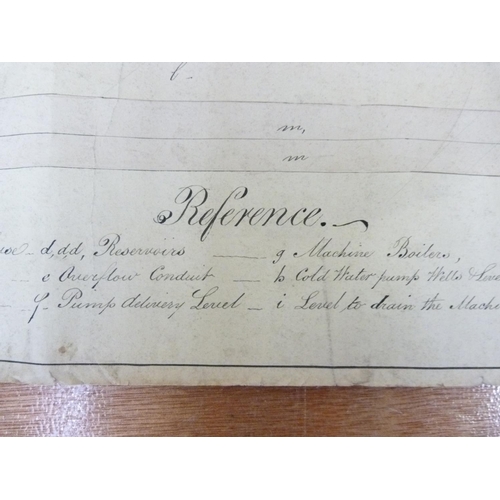 l
m,
m
Reference.
use - d,d,d, Reservoirs — g Machine Boilers,
- e Overflow Conduit — h Cold Water pump Wells & Leve
- f - Pump delivery Level - i Level to drain the Machi